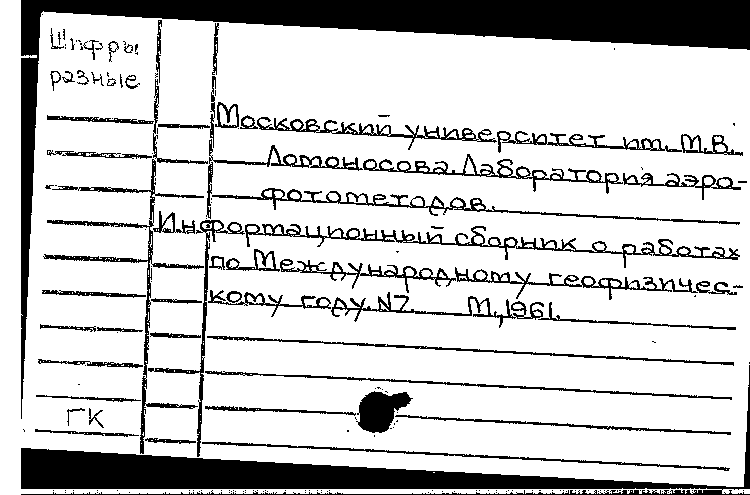 Шифры
разные
Московский университет им. М.В.
Ломоносова. Лаборатория аэро-
фотометодов.
Информационный сборник о работах
по Международному геофизичес-
кому году. N7. М., 1961.
ГК